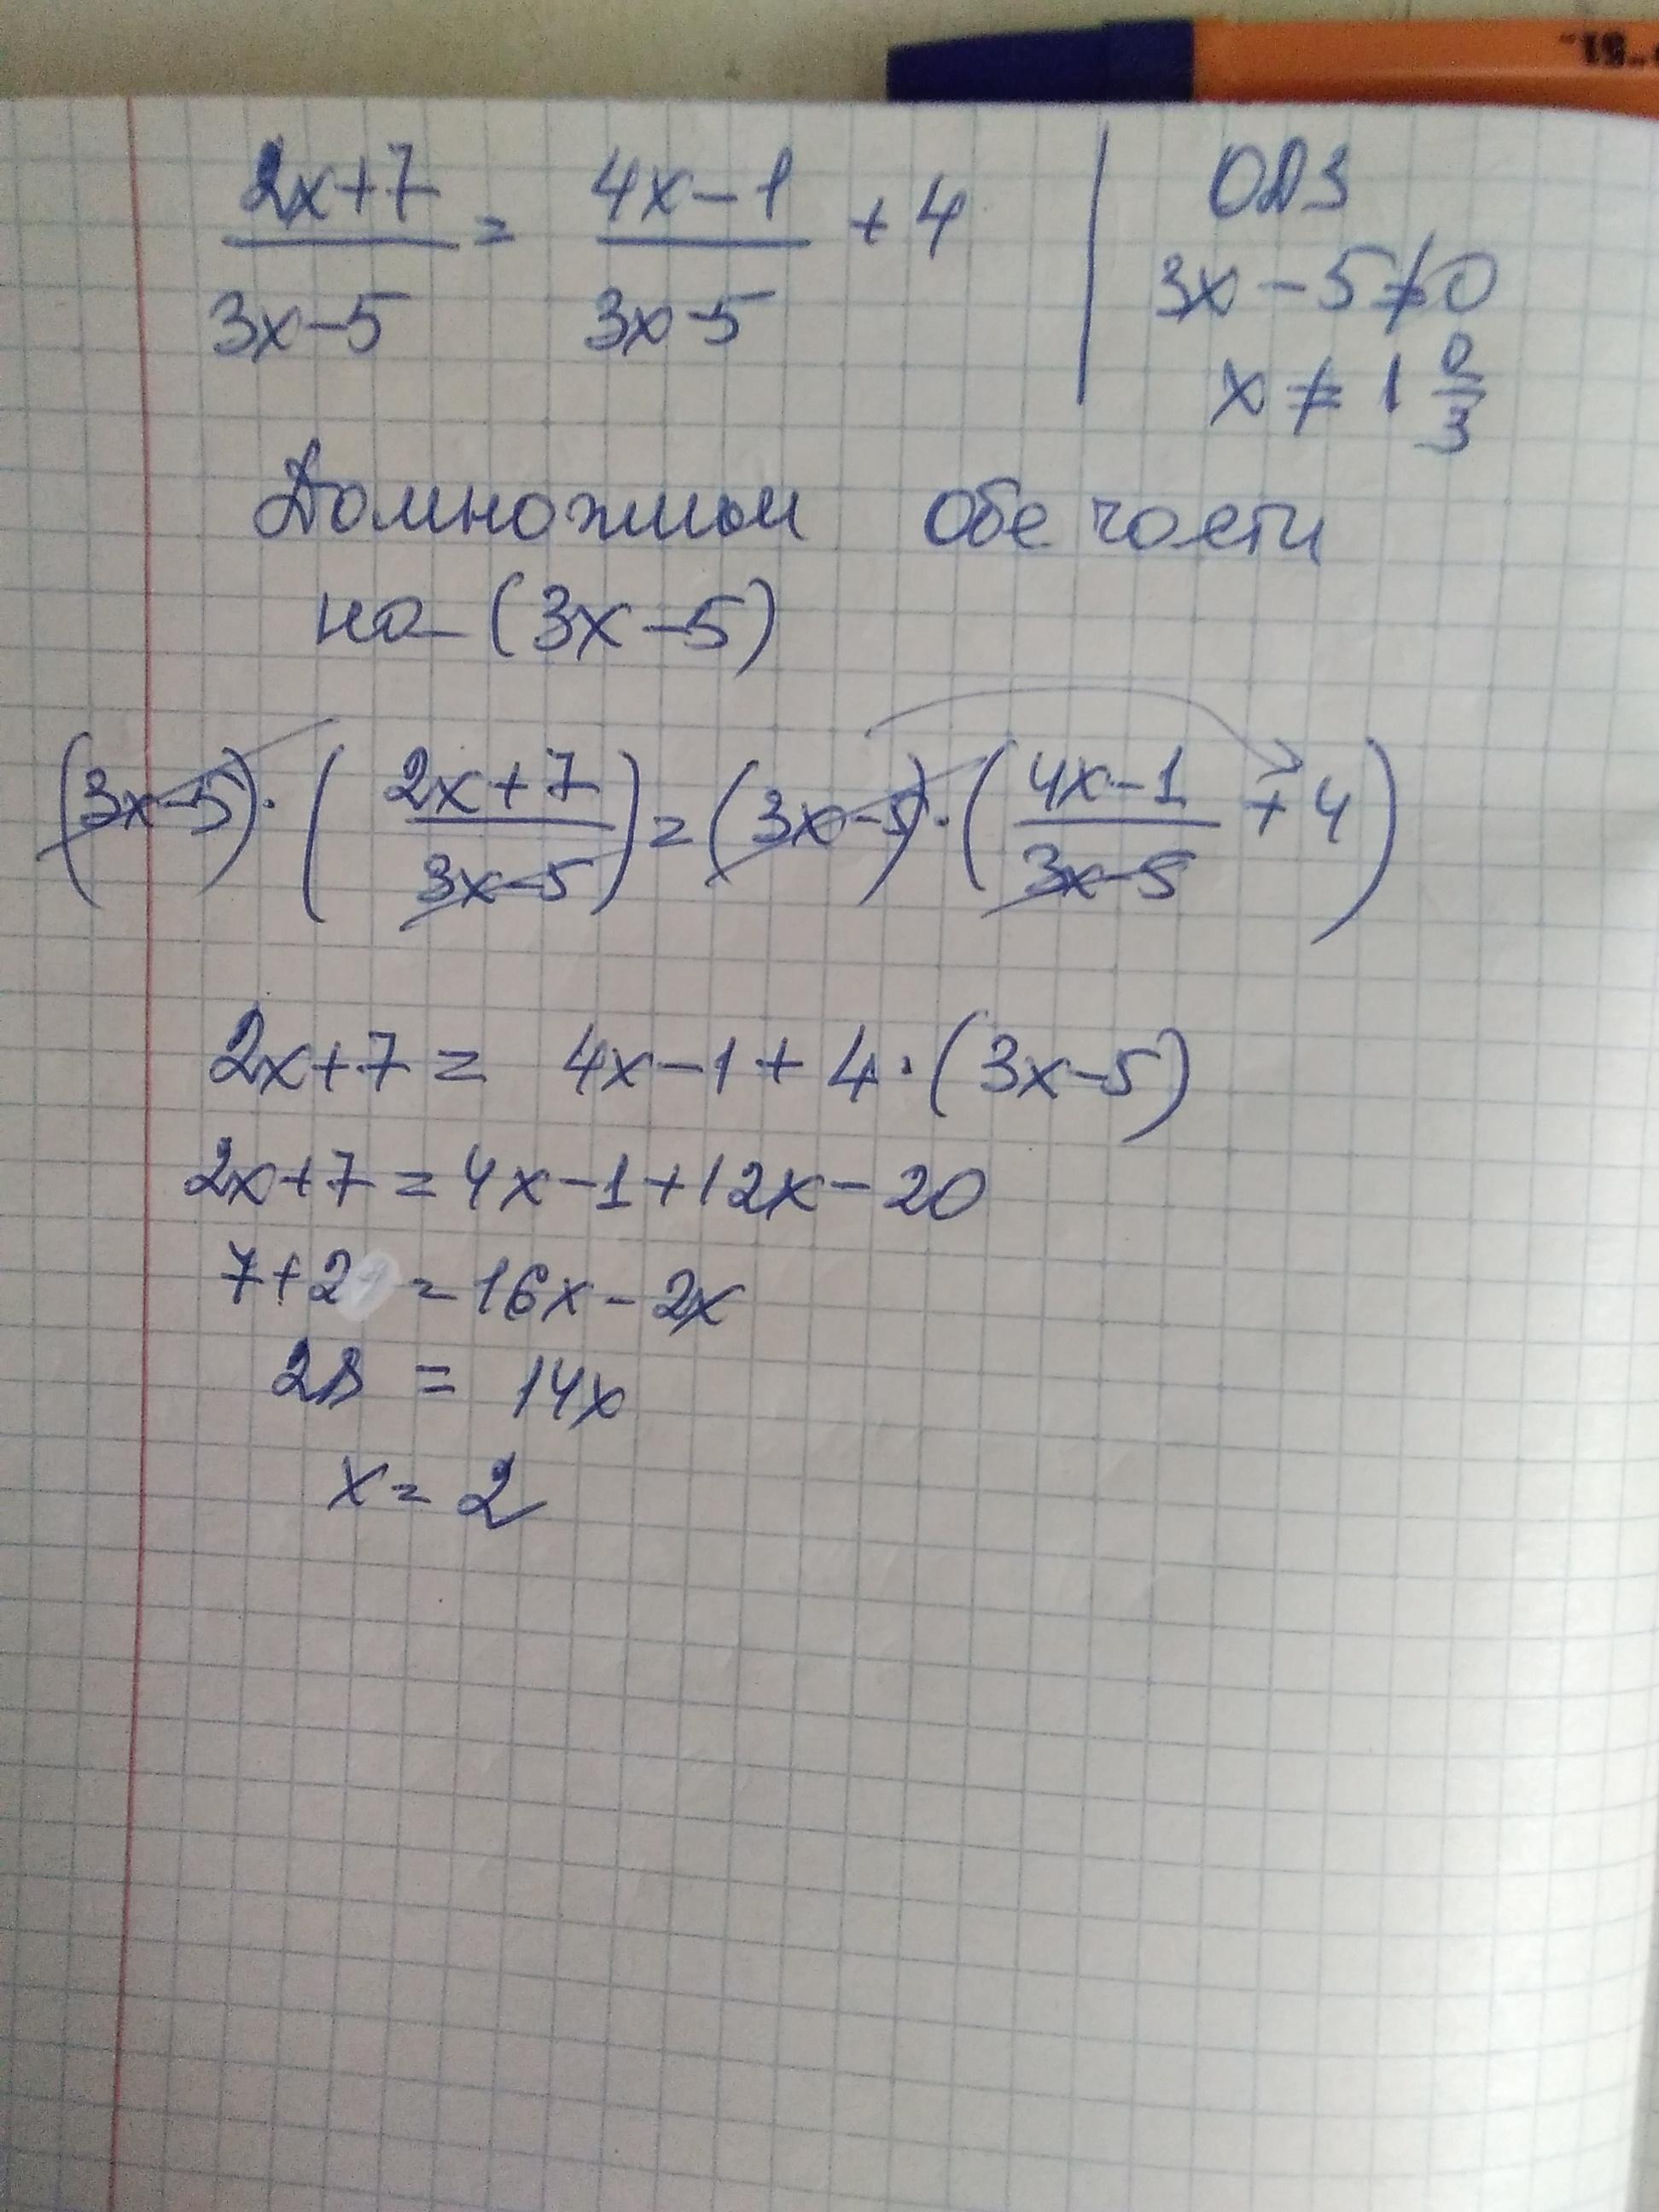 2x+7 / 3x-5 = 4x-1 / 3x-5 + 4
ОДЗ
3x-5≠0
x ≠ 1 2/3
Домножим обе части
на (3x-5)
(3x-5)·(2x+7 / 3x-5) = (3x-5)·(4x-1 / 3x-5 + 4)
2x+7 = 4x-1+4·(3x-5)
2x+7=4x-1+12x-20
7+21=16x-2x
28 = 14x
x = 2